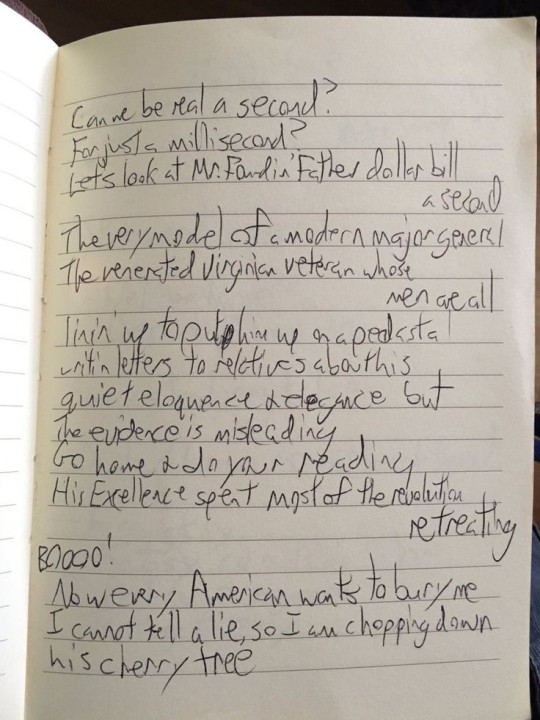 Can we be real a second?
For just a millisecond?
Let's look at Mr. Foundin' Father dollar bill
a second
The very model of a modern major general
The venerated Virginian veteran whose
men are all
linin' up to put him up on a pedastal
writin letters to relatives about his
quiet eloquence & elegance but
The evidence is misleading
Go home & do your reading
His Excellence spent most of the revolution
retreating
BOOOO!
Now every American wants to bury me
I cannot tell a lie, so I am chopping down
his cherry tree